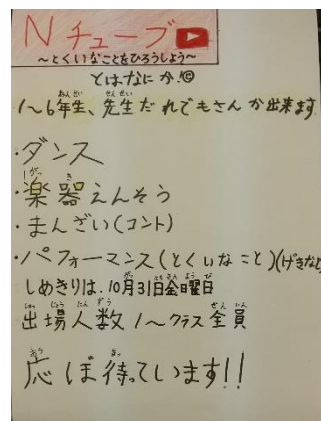 Nチューブ
～とくいなことをひろうしよう～
とはなにか!©
1～6年生、先生だれでもさんか出来ます
・ダンス
・楽器えんそう
・まんざい(コント)
・パフォーマンス(とくいなこと)(げきなど
しめきりは、10月31日金曜日
出場人数 1～クラス全員
応ぼ待っています!!